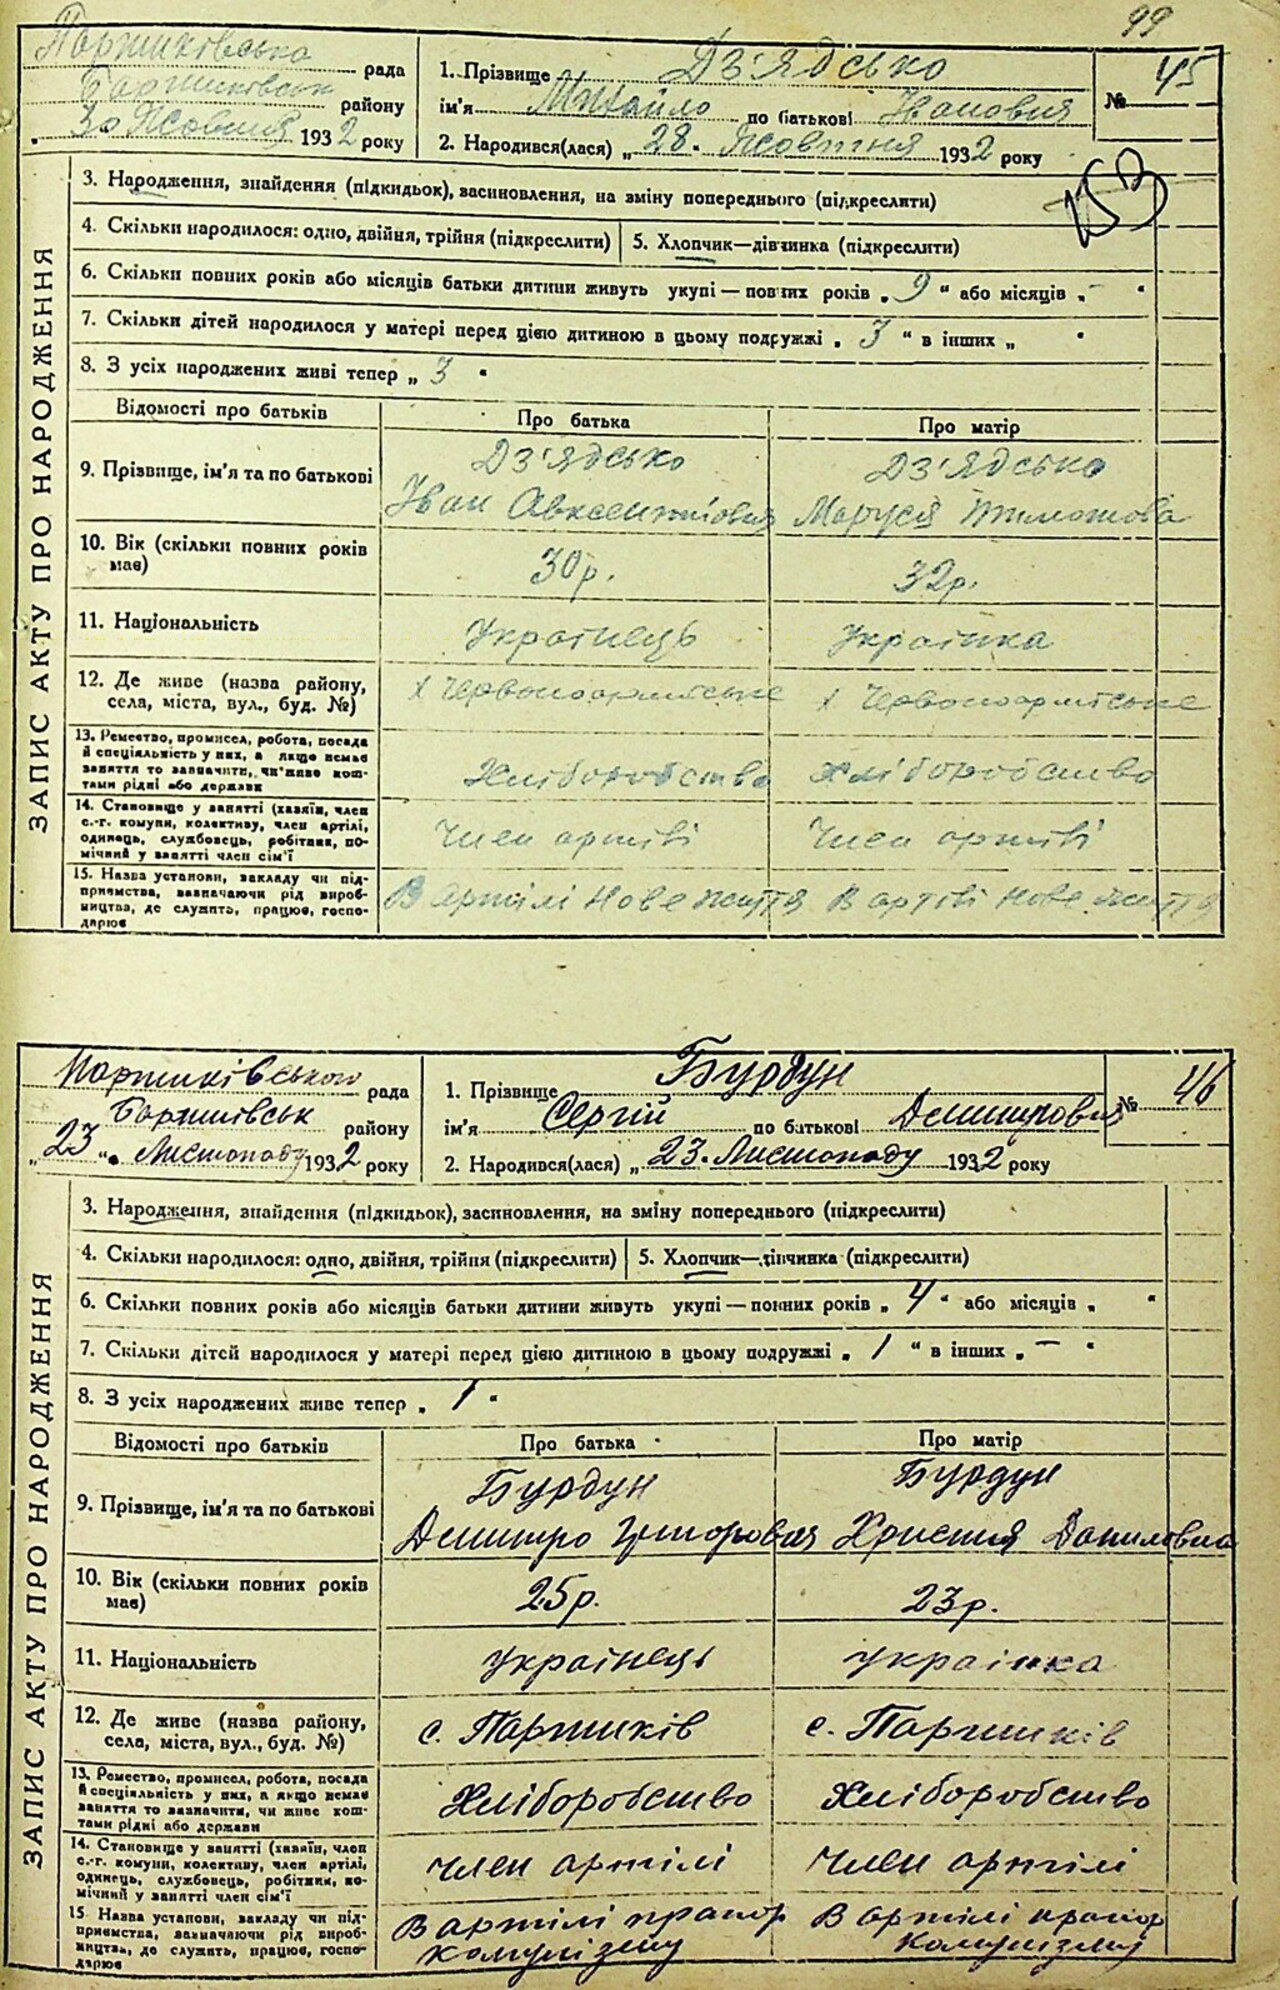 99
Партиківська рада
Баришівськ району
„ 30 Жовтня 1932 року
1. Прізвище Дз'ядсько
ім'я Михайло по батькові Іванович
2. Народився(лася) „ 28 „ Жовтня 1932 року
№ 45
153
ЗАПИС АКТУ ПРО НАРОДЖЕННЯ
3. Народження, знайдення (підкидьок), засиновлення, на зміну попереднього (підкреслити)
4. Скільки народилося: одно, двійня, трійня (підкреслити) 5. Хлопчик—дівчинка (підкреслити)
6. Скільки повних років або місяців батьки дитини живуть укупі — повних років „ 9 “ або місяців „ – “
7. Скільки дітей народилося у матері перед цією дитиною в цьому подружжі „ 3 “ в інших „ “
8. З усіх народжених живі тепер „ 3 “
Відомості про батьків Про батька Про матір
9. Прізвище, ім'я та по батькові
Дз'ядсько
Іван Авксентійович
Дз'ядсько
Маруся Тимотова
10. Вік (скільки повних років
має)
30р. 32р.
11. Національність Українець Українка
12. Де живе (назва району,
села, міста, вул., буд. №)
х Червоноармійське х Червоноармійське
13. Ремество, промисел, робота, посада
й спеціяльність у них, а якщо немає
заняття то зазначити, чи живе кош-
тами рідні або держави
Хліборобство Хліборобство
14. Становище у занятті (хазяїн, член
с.-г. комуни, колективу, член артілі,
одинець, службовець, робітник, по-
мічний у занятті член сім'ї
Член артілі Член артілі
15. Назва установи, закладу чи під-
приємства, зазначаючи рід вироб-
ництва, де служить, працює, госпо-
дарює
В Артілі Нове життя В артілі Нове життя
Партиківською рада
Баришівськ району
„ 23 “ Листопаду 1932 року
1. Прізвище Бурдун
ім'я Сергій по батькові Демитрович
2. Народився(лася) „ 23. Листопаду 1932 року
№ 46
ЗАПИС АКТУ ПРО НАРОДЖЕННЯ
3. Народження, знайдення (підкидьок), засиновлення, на зміну попереднього (підкреслити)
4. Скільки народилося: одно, двійня, трійня (підкреслити) 5. Хлопчик—дівчинка (підкреслити)
6. Скільки повних років або місяців батьки дитини живуть укупі — повних років „ 4 “ або місяців „ “
7. Скільки дітей народилося у матері перед цією дитиною в цьому подружжі „ 1 “ в інших „ – “
8. З усіх народжених живе тепер „ 1 “
Відомості про батьків Про батька Про матір
9. Прізвище, ім'я та по батькові
Бурдун
Демитро Григорович
Бурдун
Христия Даниловна
10. Вік (скільки повних років
має)
25р. 23р.
11. Національність Українець українка
12. Де живе (назва району,
села, міста, вул., буд. №)
с. Партиків с. Партиків
13. Ремество, промисел, робота, посада
й спеціяльність у них, а якщо немає
заняття то зазначити, чи живе кош-
тами рідні або держави
Хліборобство Хліборобство
14. Становище у занятті (хазяїн, член
с.-г. комуни, колективу, член артілі,
одинець, службовець, робітник, по-
мічний у занятті член сім'ї
Член артілі Член артілі
15 Назва установи, закладу чи під-
приємства, зазначаючи рід вироб-
ництва, де служить, працює, госпо-
дарює
В артілі прапор
комунізму
В артілі прапор
комунізму